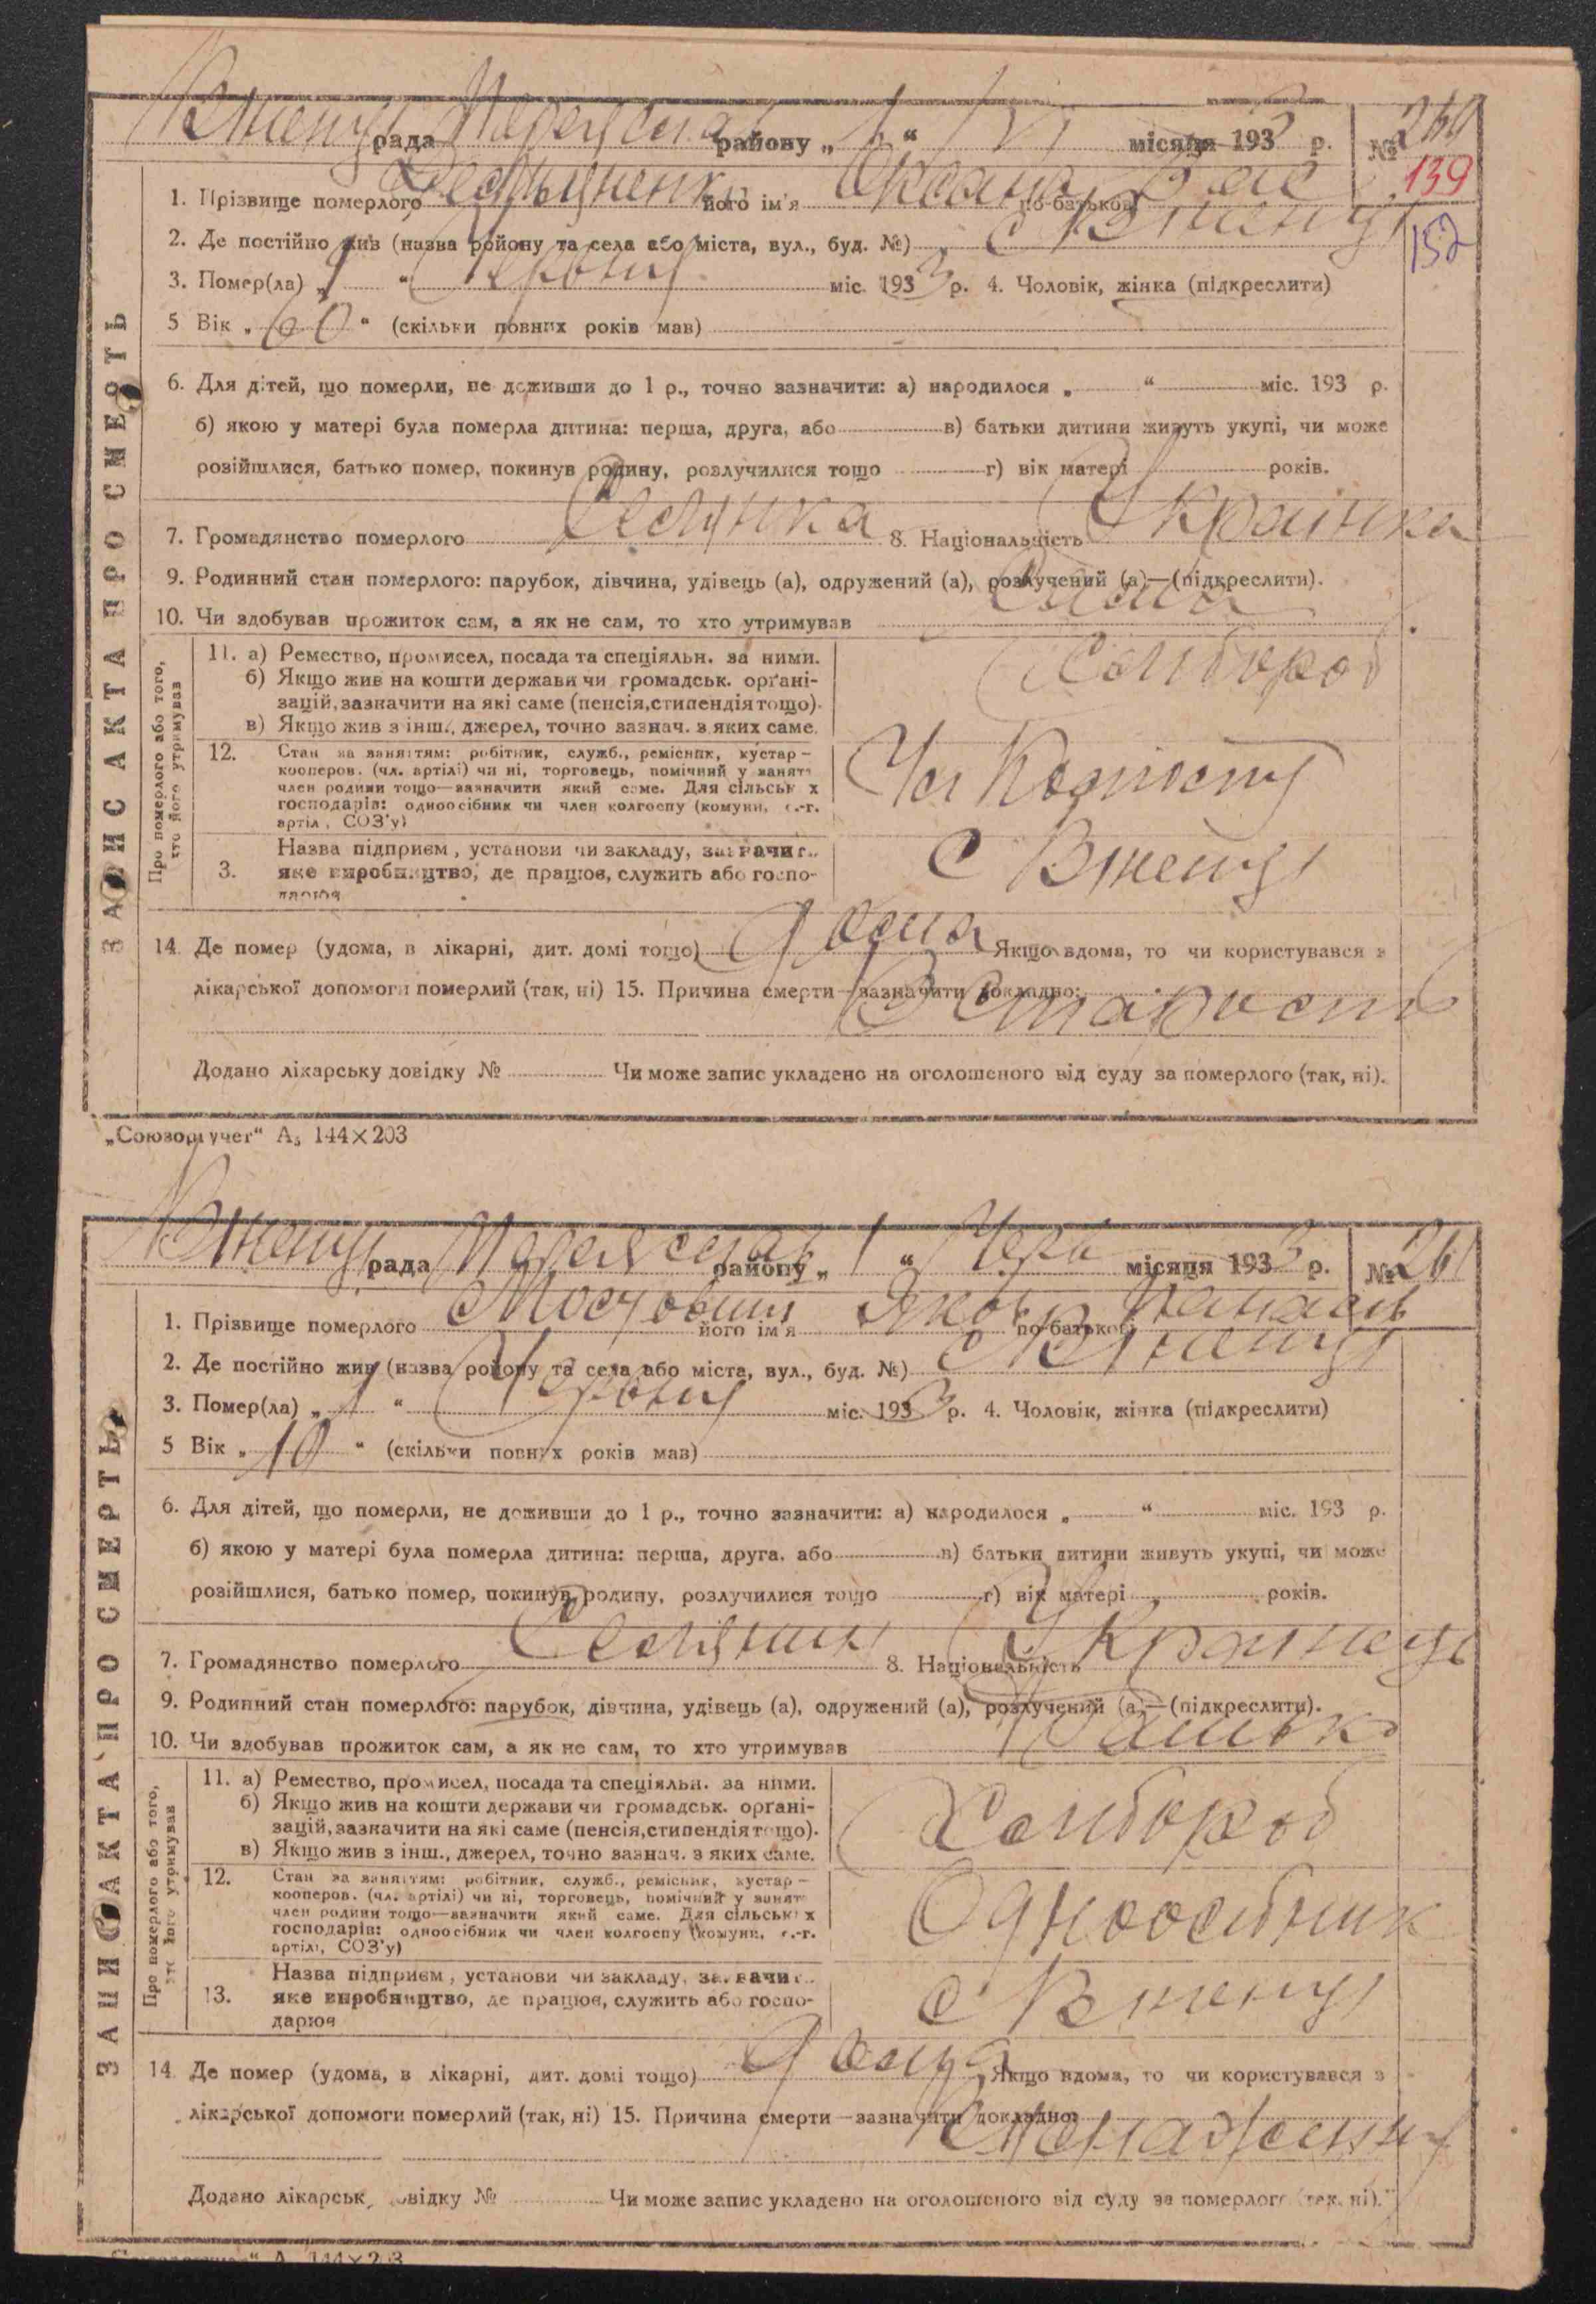 рада району „1“ VI місяця 1933 р. № 260
139
152
1. Прізвище померлого його ім'я по-батькові
2. Де постійно жив (назва району та села або міста, вул., буд. №) с
3. Помер(ла) „1“ Червня міс. 1933 р. 4. Чоловік, жінка (підкреслити)
5 Вік „60“ (скільки повних років мав)
6. Для дітей, що померли, не доживши до 1 р., точно зазначити: а) народилося „ “ міс. 193 р.
б) якою у матері була померла дитина: перша, друга, або в) батьки дитини живуть укупі, чи може
розійшлися, батько помер, покинув родину, розлучилися тощо г) вік матері років.
7. Громадянство померлого Селянка 8. Національність Українка
9. Родинний стан померлого: парубок, дівчина, удівець (а), одружений (а), розлучений (а)—(підкреслити).
10. Чи здобував прожиток сам, а як не сам, то хто утримував Сама
ЗАПИС АКТА ПРО СМЕРТЬ
Про померлого або того, хто його утримував
11. а) Ремество, промисел, посада та спеціяльн. за ними. Хлібороб
б) Якщо жив на кошти держави чи громадськ. орґані-
зацій, зазначити на які саме (пенсія, стипендія тощо).
в) Якщо жив з інш., джерел, точно зазнач. з яких саме.
12. Стан за заняттям: робітник, служб., ремісник, кустар—
кооперов. (чл. артілі) чи ні, торговець, помічний у занятт
член родини тощо—зазначити який саме. Для сільськ х
господарів: одноосібник чи член колгоспу (комуни, с.-г.
артіл, СОЗ'у) Чл Колгоспу
Назва підприєм, установи чи закладу, зазначит..
3. яке виробництво, де працює, служить або госпо-
дарює с
14. Де помер (удома, в лікарні, дит. домі тощо) Дома Якщо вдома, то чи користувався з
лікарської допомоги померлий (так, ні) 15. Причина смерти—зазначити докладно: Старость
Додано лікарську довідку № Чи може запис укладено на оголошеного від суду за померлого (так, ні).
„Союзоргучет“ А₅ 144×203
рада району „1“ Черв місяця 1933 р. № 261
1. Прізвище померлого його ім'я Яков по-батькові Панасов
2. Де постійно жив (назва району та села або міста, вул., буд. №) с
3. Помер(ла) „1“ Червня міс. 1933 р. 4. Чоловік, жінка (підкреслити)
5 Вік „10“ (скільки повних років мав)
6. Для дітей, що померли, не доживши до 1 р., точно зазначити: а) народилося „ “ міс. 193 р.
б) якою у матері була померла дитина: перша, друга, або в) батьки дитини живуть укупі, чи може
розійшлися, батько помер, покинув родину, розлучилися тощо г) вік матері років.
7. Громадянство померлого Селянин 8. Національність Українець
9. Родинний стан померлого: парубок, дівчина, удівець (а), одружений (а), розлучений (а)—(підкреслити).
10. Чи здобував прожиток сам, а як не сам, то хто утримував Батько
ЗАПИС АКТА ПРО СМЕРТЬ
Про померлого або того, хто його утримував
11. а) Ремество, промисел, посада та спеціяльн. за ними.
б) Якщо жив на кошти держави чи громадськ. орґані-
зацій, зазначити на які саме (пенсія, стипендія тощо). Хлібороб
в) Якщо жив з інш., джерел, точно зазнач. з яких саме.
12. Стан за заняттям: робітник, служб., ремісник, кустар—
кооперов. (чл. артілі) чи ні, торговець, помічний у занятт
член родини тощо—зазначити який саме. Для сільськ х
господарів: одноосібник чи член колгоспу (комуни, с.-г.
артілі, СОЗ'у) Одноосібник
Назва підприєм, установи чи закладу, зазначит..
13. яке виробництво, де працює, служить або госпо-
дарює с
14. Де помер (удома, в лікарні, дит. домі тощо) Дома Якщо вдома, то чи користувався з
лікарської допомоги померлий (так, ні) 15. Причина смерти—зазначити докладно:
Додано лікарськ довідку № Чи може запис укладено на оголошеного від суду за померлого (так, ні).
144×203